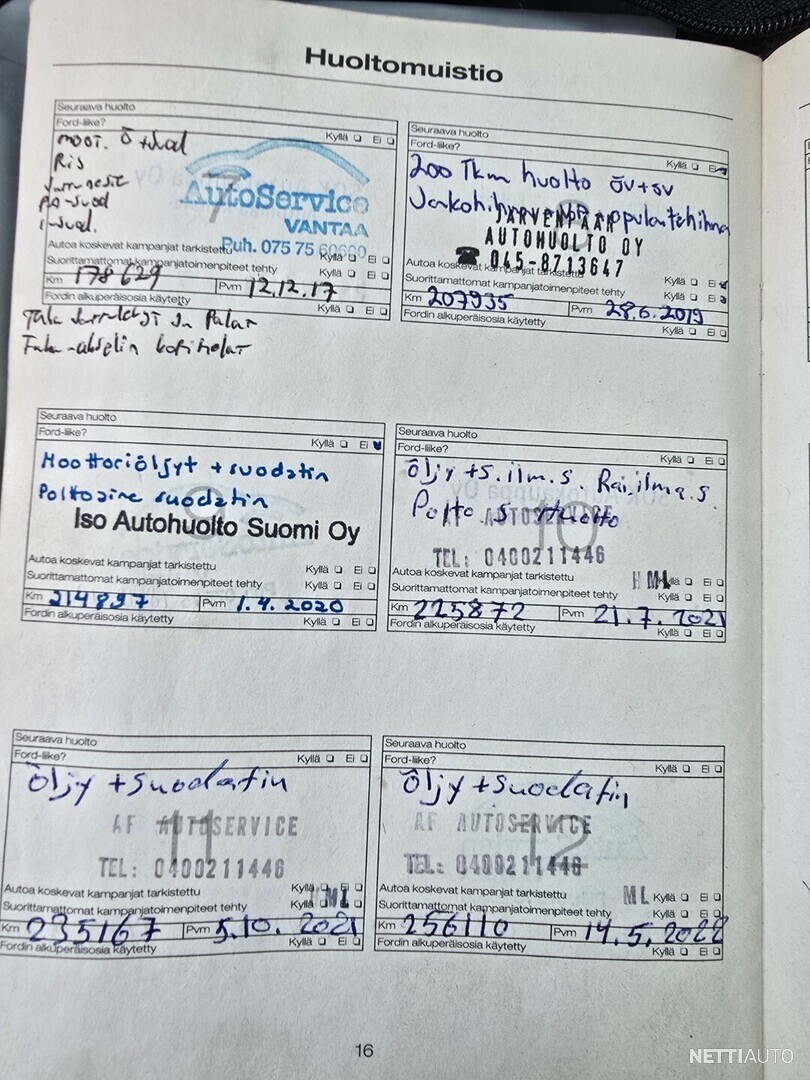 Huoltomuistio
Seuraava huolto
Ford-liike? Kyllä Ei
moot. Ö + suod
Ris
Jarruneste
pa-suod
i-suod.
7
AutoService
VANTAA
Puh. 075 75 60600
Autoa koskevat kampanjat tarkistettu Kyllä Ei
Suorittamattomat kampanjatoimenpiteet tehty Kyllä Ei
Km 178629 Pvm 12.12.17
Fordin alkuperäisosia käytetty Kyllä Ei
Taka Jarrulevyt ja Palat
Taka-akselin
Seuraava huolto
Ford-liike? Kyllä Ei
200 Tkm huolto öv+sv
Jakohihna
8
JÄRVENPÄÄN
AUTOHUOLTO OY
☎ 045-8713647
Autoa koskevat kampanjat tarkistettu Kyllä Ei
Suorittamattomat kampanjatoimenpiteet tehty Kyllä Ei
Km 207935 Pvm 28.6.2019
Fordin alkuperäisosia käytetty Kyllä Ei
Seuraava huolto
Ford-liike? Kyllä Ei
Moottoriöljyt + suodatin
Polttoaine suodatin
9
Iso Autohuolto Suomi Oy
Autoa koskevat kampanjat tarkistettu Kyllä Ei
Suorittamattomat kampanjatoimenpiteet tehty Kyllä Ei
Km 214897 Pvm 1.4.2020
Fordin alkuperäisosia käytetty Kyllä Ei
Seuraava huolto
Ford-liike? Kyllä Ei
Öljy + s. ilm. s. Rai.ilma.s.
Polto. s
10
AF AUTOSERVICE
TEL: 0400211446
Autoa koskevat kampanjat tarkistettu Kyllä Ei
ML
Suorittamattomat kampanjatoimenpiteet tehty Kyllä Ei
Km 225872 Pvm 21.7.2021
Fordin alkuperäisosia käytetty Kyllä Ei
Seuraava huolto
Ford-liike? Kyllä Ei
Öljy + suodatin
11
AF AUTOSERVICE
TEL: 0400211446
Autoa koskevat kampanjat tarkistettu Kyllä Ei
Suorittamattomat kampanjatoimenpiteet tehty Kyllä Ei
ML
Km 235167 Pvm 5.10.2021
Fordin alkuperäisosia käytetty Kyllä Ei
Seuraava huolto
Ford-liike? Kyllä Ei
Öljy + suodatin
12
AF AUTOSERVICE
TEL: 0400211446
Autoa koskevat kampanjat tarkistettu ML Kyllä Ei
Suorittamattomat kampanjatoimenpiteet tehty Kyllä Ei
Km 256110 Pvm 14.5.2022
Fordin alkuperäisosia käytetty Kyllä Ei
16
NETTIAUTO